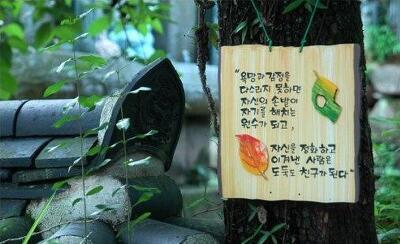 "욕망과 감정을
다스리지 못하면
자신의 손발이
자기를 해치는
원수가 되고,
자신을 정화하고
이겨낸 사람은
도둑도 친구가 된다"